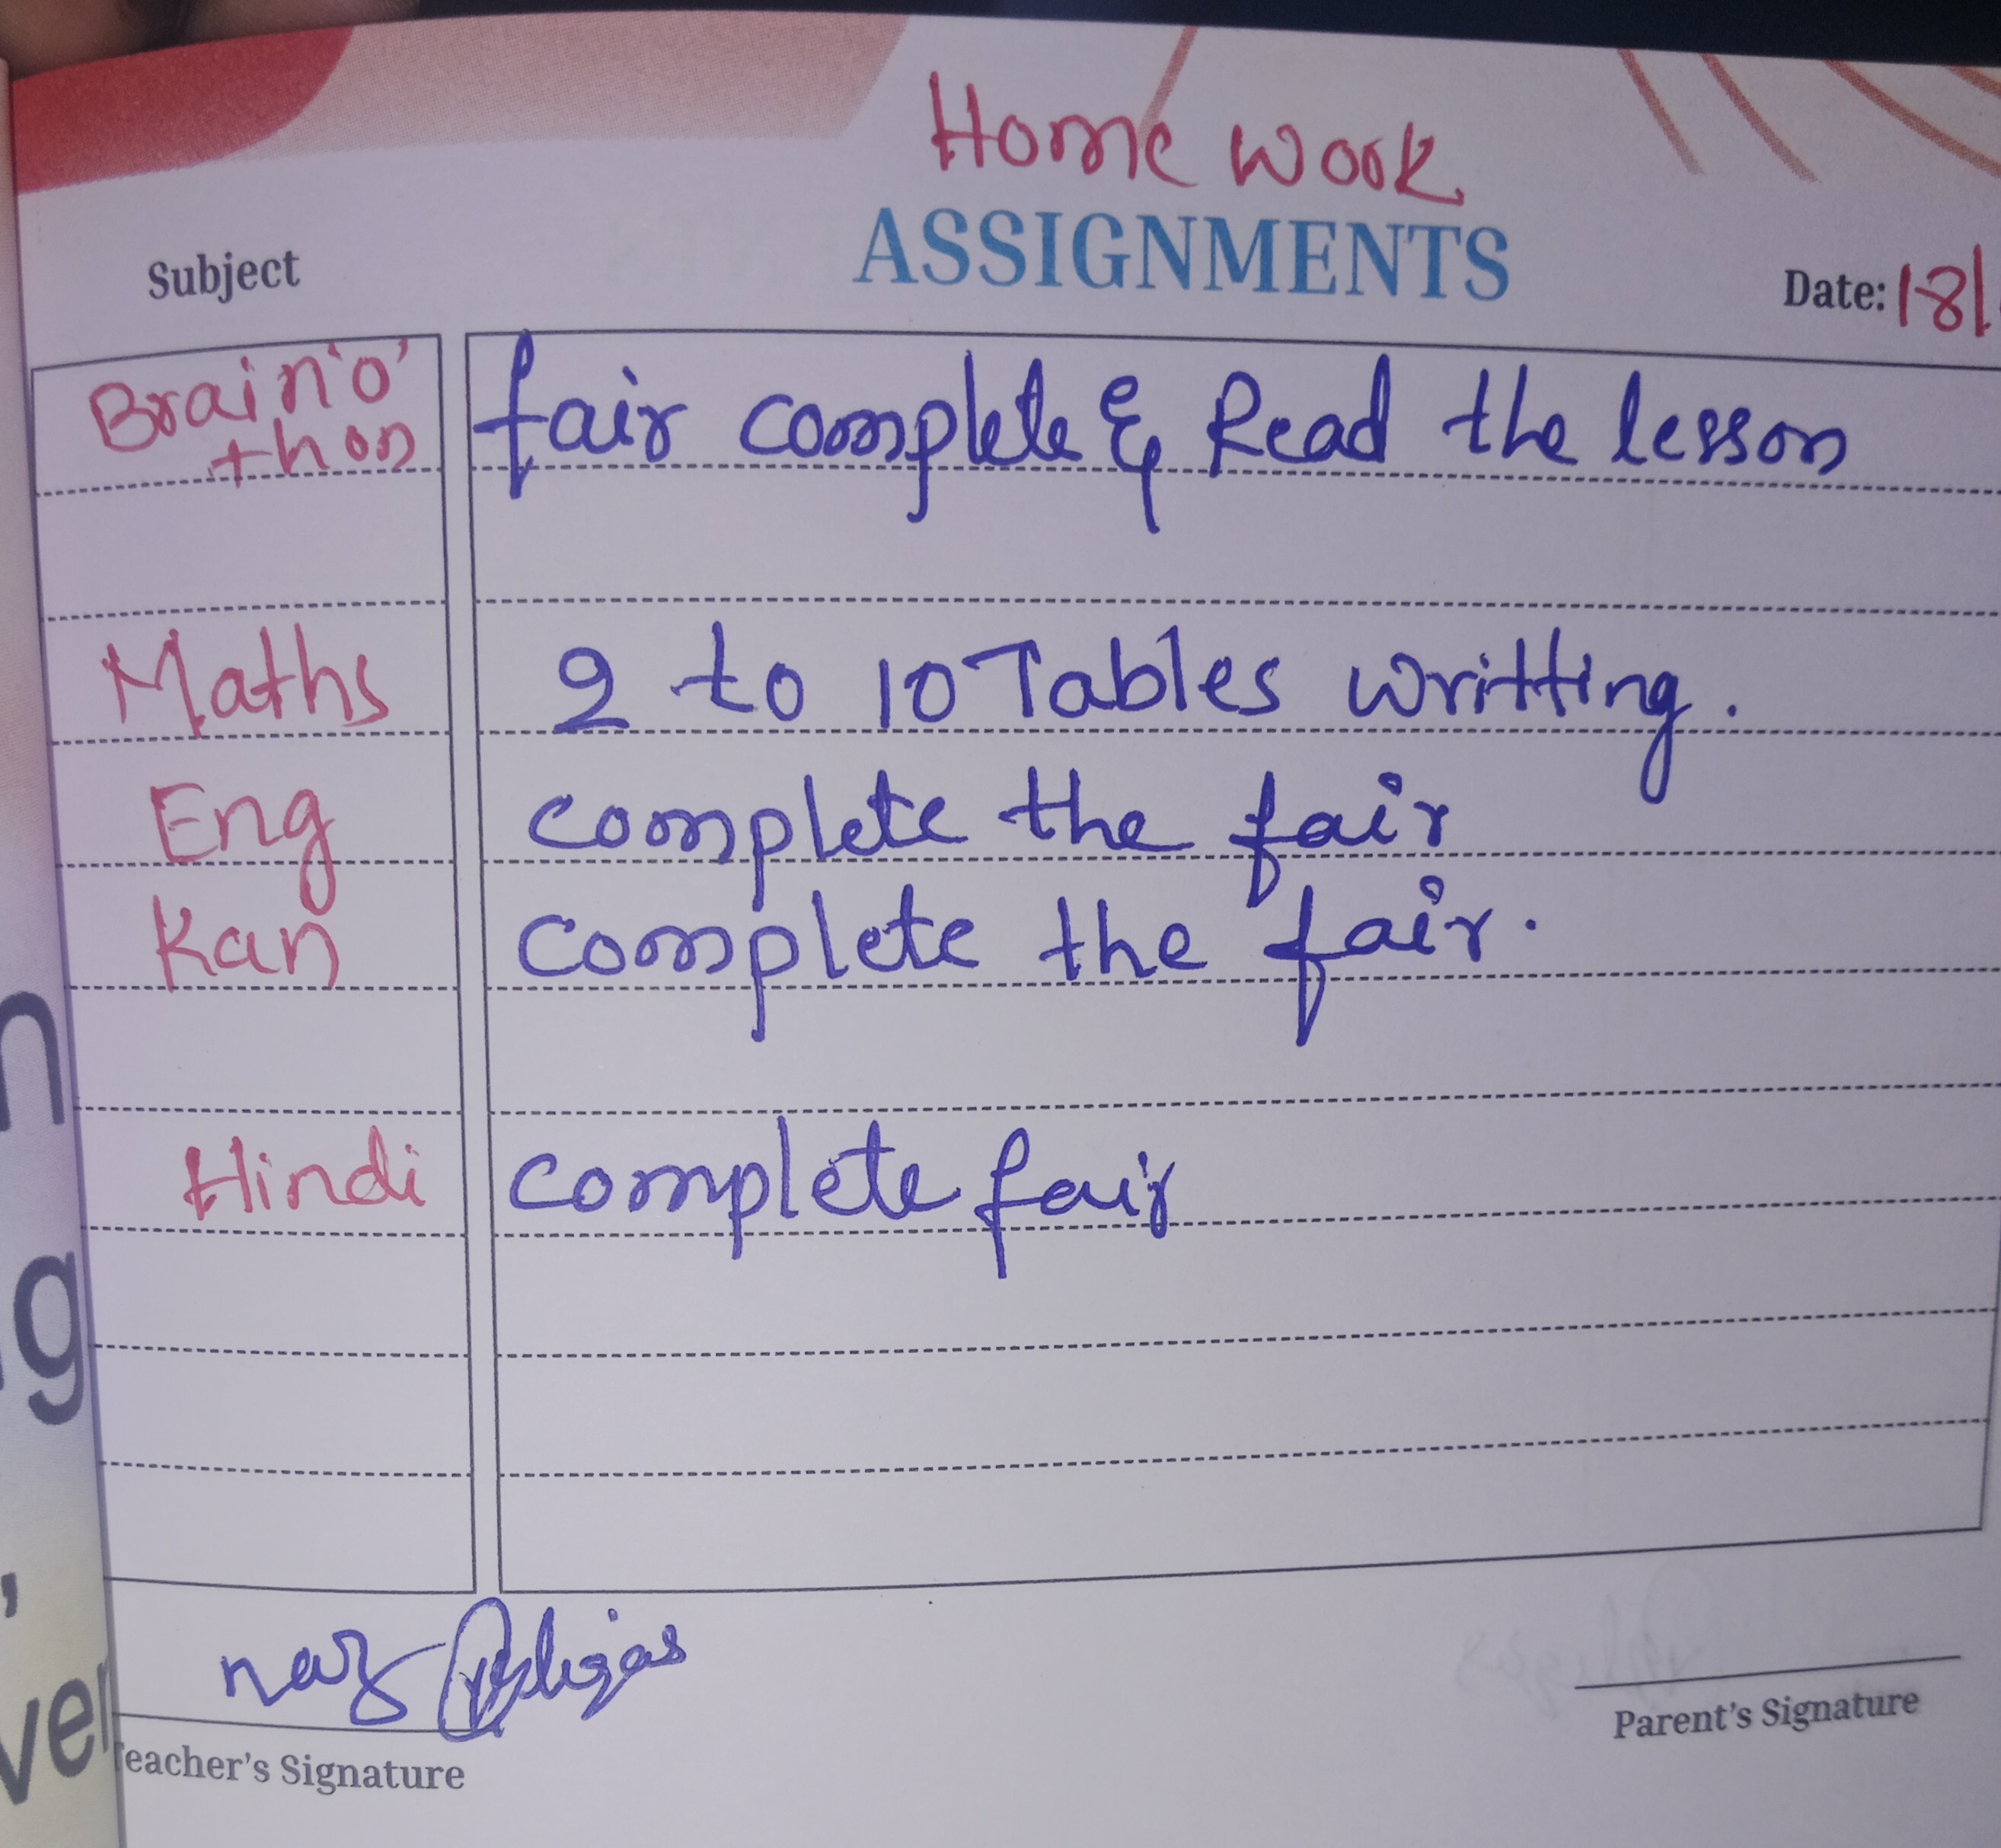 Home Work
ASSIGNMENTS
Subject
Date: 1-8/
Brain 'o' fair complete & Read the lesson
thon
Maths 2 to 10 Tables writting.
Eng complete the fair
Kan complete the fair.
Hindi complete fair
naz
Teacher's Signature
Parent's Signature